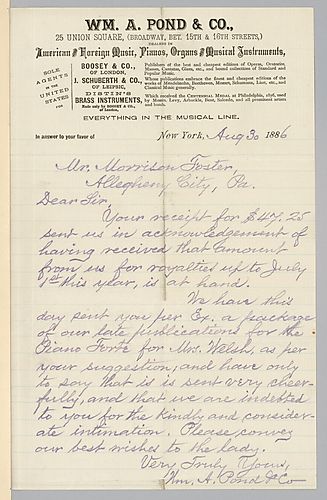 WM. A. POND & CO.,
25 UNION SQUARE, (BROADWAY, BET. 15TH & 16TH STREETS,)
DEALERS IN
American & Foreign Music, Pianos, Organs and Musical Instruments,
SOLE AGENTS IN THE UNITED STATES FOR
BOOSEY & CO., OF LONDON,
J. SCHUBERTH & CO., OF LEIPSIC,
DISTIN'S BRASS INSTRUMENTS,
Made only by BOOSEY & CO., of London,
Publishers of the best and cheapest editions of Operas, Oratorios, Masses, Cantatas, Glees, etc., and bound collections of Standard and Popular Music.
Whose publications embrace the finest and cheapest editions of the works of Mendelssohn, Beethoven, Mozart, Schumann, Liszt, etc., and Classical Music generally.
Which received the CENTENNIAL MEDAL at Philadelphia, 1876, used by Messrs. Levy, Arbuckle, Bent, Salcedo, and all prominent artists and bands.
EVERYTHING IN THE MUSICAL LINE.
In answer to your favor of
New York, Aug 30 1886
Mr. Morrison Foster,
Allegheny City, Pa.
Dear Sir,
Your receipt for $47.25
sent us in acknowledgement of
having received that amount
from us for royalties up to July
1st this year, is at hand.
We have this
day sent you per Ex. a package
of our late publications for the
Piano Forte for Mrs. Welsh, as per
your suggestion, and have only
to say that is is sent very cheer-
fully, and that we are indebted
to you for the kindly and consider-
ate intimation. Please convey
our best wishes to the lady.
Very Truly Yours,
Wm. A. Pond & Co